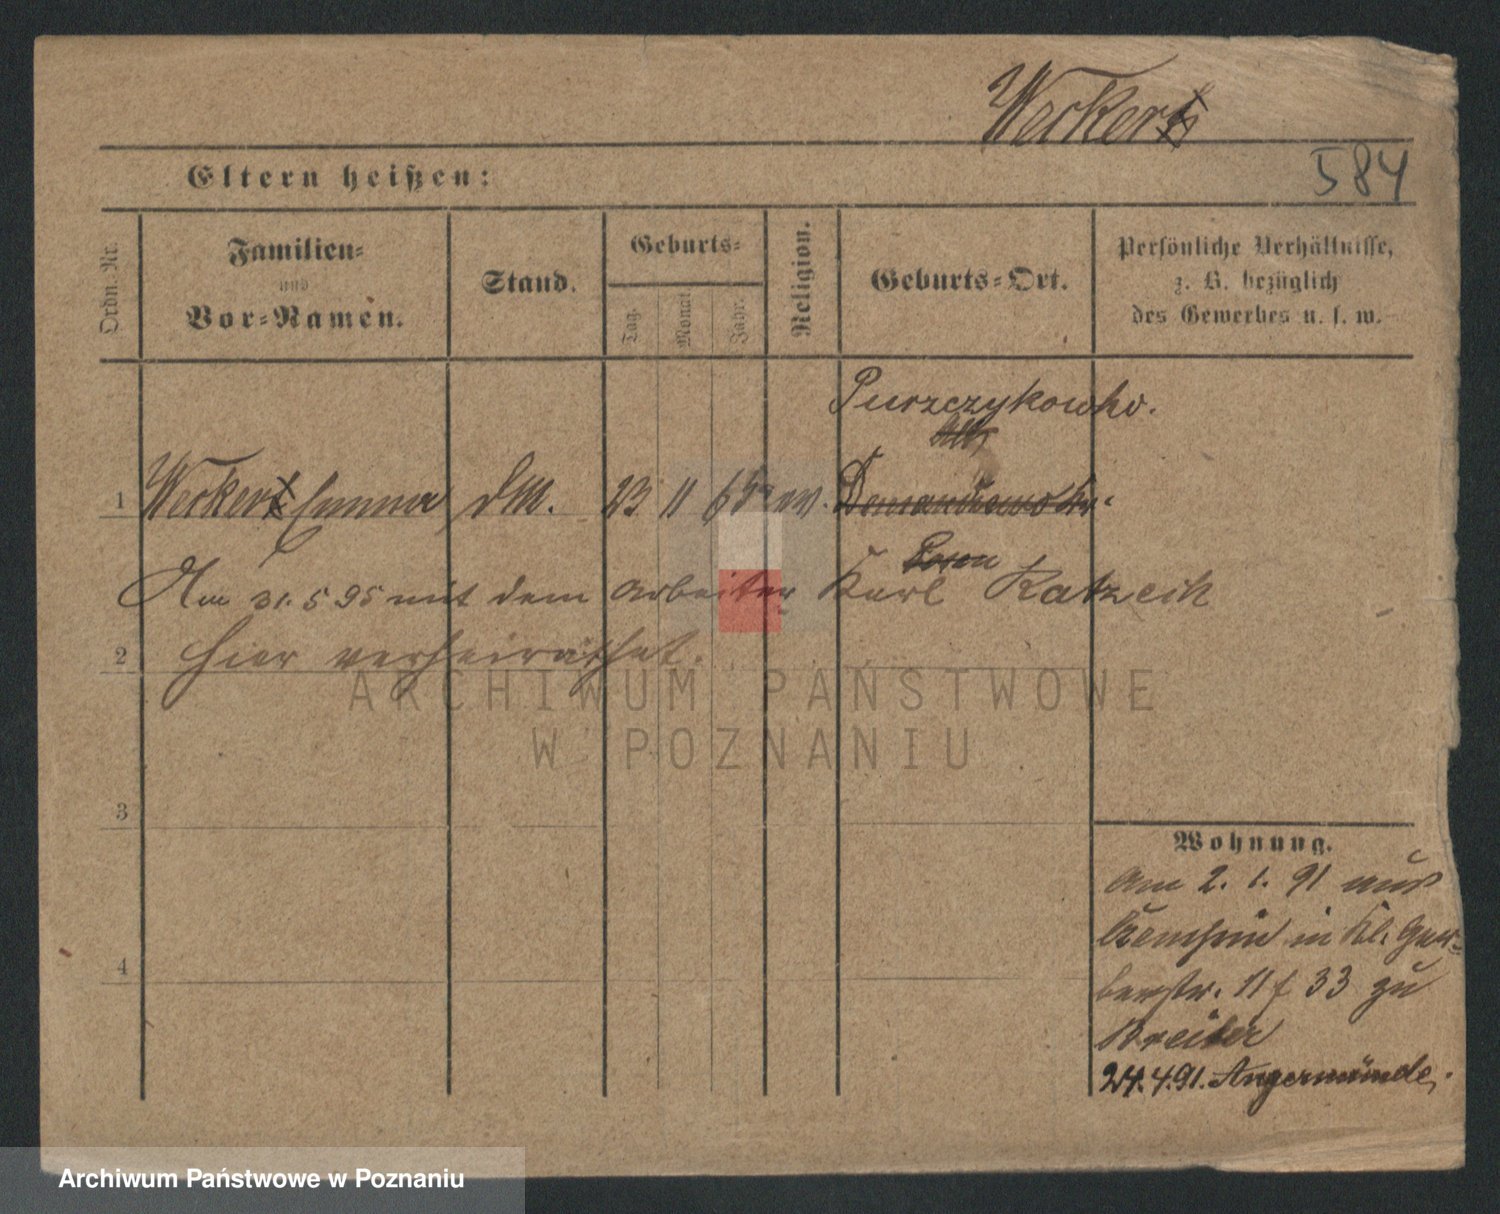 Wecker
584
Eltern heißen:
Ordn.-Nr.
Familien-
und
Vor-Namen.
Stand.
Geburts-
Tag.
Monat
Jahr.
Religion.
Geburts-Ort.
Persönliche Verhältnisse,
z. B. bezüglich
des Gewerbes u. s. w.
Puszczykowko.
1 Wecker Emma 23 11 65 ev.
Posen
Am 31.5 95 mit dem Arbeiter Karl Katzeck
2 hier verheirathet.
ARCHIWUM PAŃSTWOWE
W POZNANIU
3
4
Wohnung.
Am 2. 1. 91 aus
in Kl. Ger-
berstr. 11 f 33 zu
24.4.91. Angermünde.
Archiwum Państwowe w Poznaniu